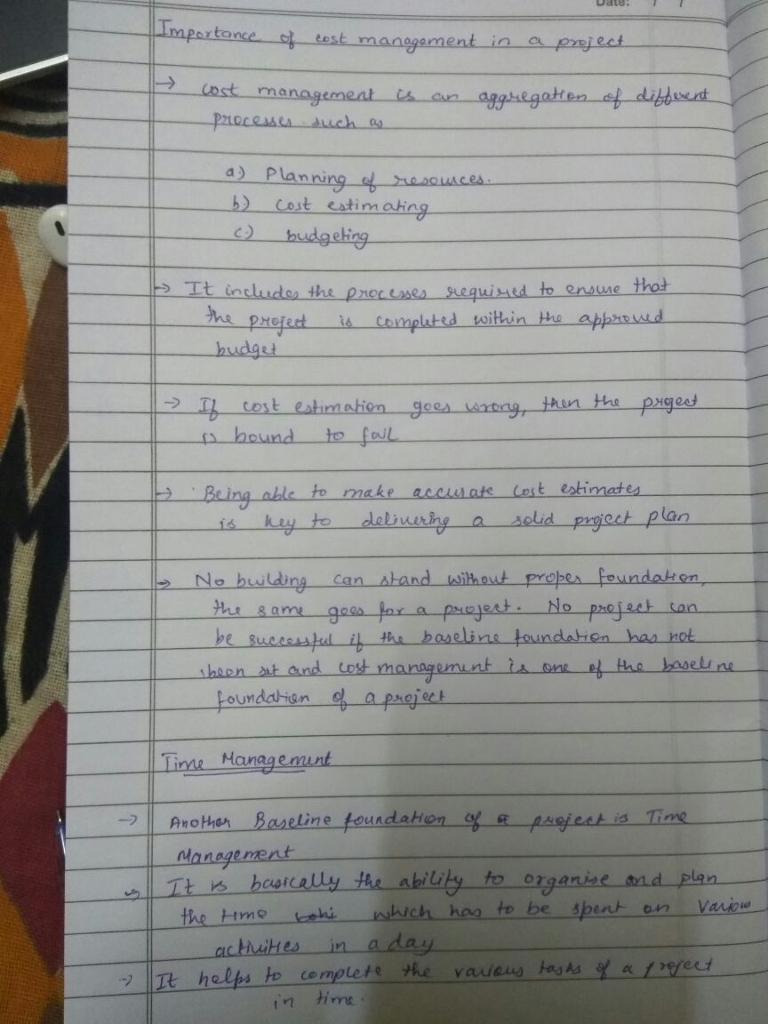 Date: / /
Importance of cost management in a project
→ cost management is an aggregation of different
processes such as
a) Planning of resources.
b) cost estimating
c) budgeting
→ It includes the processes required to ensure that
the project is completed within the approved
budget
→ If cost estimation goes wrong, then the project
is bound to fail
→ Being able to make accurate cost estimates
is key to delivering a solid project plan
→ No building can stand without proper foundation,
the same goes for a project. No project can
be successful if the baseline foundation has not
been set and cost management is one of the baseline
foundation of a project
Time Management
→ Another Baseline foundation of a project is Time
Management
→ It is basically the ability to organise and plan
the time which has to be spent on various
activities in a day
→ It helps to complete the various tasks of a project
in time.